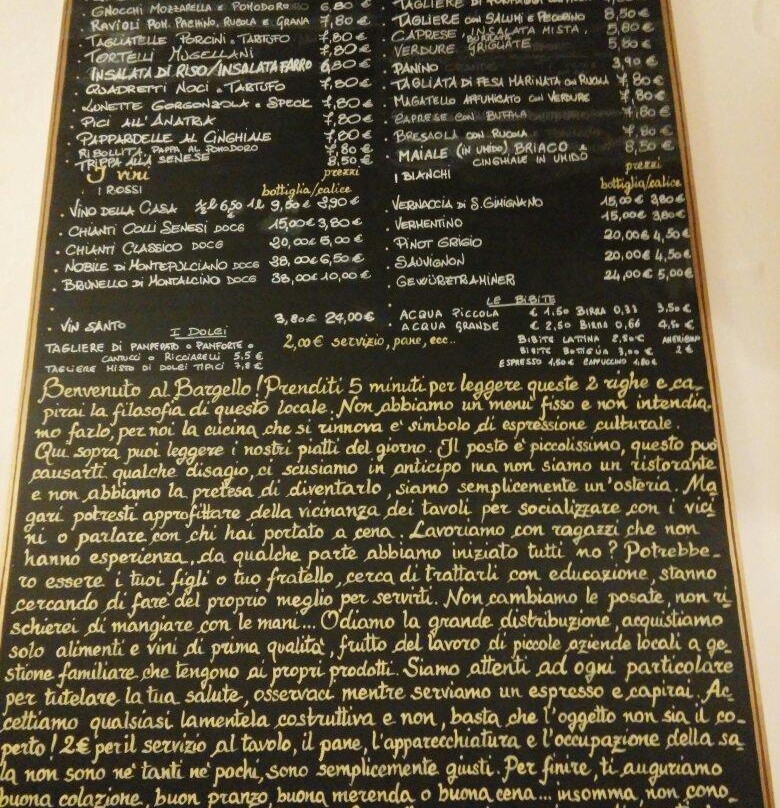 GNOCCHI MOZZARELLA E POMODORO 6,80 €
RAVIOLI POM. PACHINO, RUCOLA E GRANA 7,80 €
TAGLIATELLE PORCINI E TARTUFO 7,80 €
TORTELLI MUGELLANI 7,80 €
INSALATA DI RISO/INSALATA FARRO 6,80 €
QUADRETTI NOCI E TARTUFO 7,80 €
LUNETTE GORGONZOLA E SPECK 7,80 €
PICI ALL'ANATRA 7,80 €
PAPPARDELLE AL CINGHIALE 7,80 €
RIBOLLITA, PAPPA AL POMODORO 7,80 €
TRIPPA ALLA SENESE 8,50 €
TAGLIERE DI
TAGLIERE CON SALUMI E PECORINO 8,50 €
CAPRESE, INSALATA MISTA, 5,80 €
VERDURE GRIGLIATE 5,80 €
PANINO 3,90 €
TAGLIATA DI FESA MARINATA CON RUCOLA 7,80 €
MAGATELLO AFFUMICATO CON VERDURE 7,80 €
CAPRESE CON BUFALA 7,80 €
BRESAOLA CON RUCOLA 7,80 €
MAIALE (IN UMIDO) BRIACO E 8,50 €
CINGHIALE IN UMIDO
I vini prezzi
I ROSSI bottiglia/calice
VINO DELLA CASA ½ l 6,50 1 l 9,50 € 3,90 €
CHIANTI COLLI SENESI DOCG 15,00 € 3,80 €
CHIANTI CLASSICO DOCG 20,00 € 5,00 €
NOBILE DI MONTEPULCIANO DOCG 28,00 € 6,50 €
BRUNELLO DI MONTALCINO DOCG 38,00 € 10,00 €
VIN SANTO 3,80 € 24,00 €
prezzi
I BIANCHI bottiglia/calice
VERNACCIA DI S. GIMIGNANO 15,00 € 3,80 €
VERMENTINO 15,00 € 3,80 €
PINOT GRIGIO 20,00 € 4,50 €
SAUVIGNON 20,00 € 4,50 €
GEWÜRZTRAMINER 24,00 € 5,00 €
I DOLCI
TAGLIERE DI PANPEPATO O PANFORTE O
CANTUCCI O RICCIARELLI 5,5 €
TAGLIERE MISTO DI DOLCI TIPICI 7,8 €
2,00 € servizio, pane, ecc..
LE BIBITE
ACQUA PICCOLA € 1,50 BIRRA 0,33 3,50 €
ACQUA GRANDE € 2,50 BIRRA 0,66 4,50 €
BIBITE LATTINA 2,50 € AMERICANO
BIBITE BOTTIGLIA 3,00 € 2 €
ESPRESSO 1,50 € CAPPUCCINO 1,80 €
Benvenuto al Bargello! Prenditi 5 minuti per leggere queste 2 righe e ca-
pirai la filosofia di questo locale. Non abbiamo un menù fisso e non intendia-
mo farlo, per noi la cucina che si rinnova e' simbolo di espressione culturale.
Qui sopra puoi leggere i nostri piatti del giorno. Il posto e' piccolissimo, questo può
causarti qualche disagio, ci scusiamo in anticipo ma non siamo un ristorante
e non abbiamo la pretesa di diventarlo, siamo semplicemente un'osteria. Ma-
gari potresti approfittare della vicinanza dei tavoli per socializzare con i vici-
ni o parlare con chi hai portato a cena. Lavoriamo con ragazzi che non
hanno esperienza, da qualche parte abbiamo iniziato tutti no? Potrebbe-
ro essere i tuoi figli o tuo fratello, cerca di trattarli con educazione, stanno
cercando di fare del proprio meglio per servirti. Non cambiamo le posate, non ri-
schierei di mangiare con le mani... Odiamo la grande distribuzione, acquistiamo
solo alimenti e vini di prima qualita', frutto del lavoro di piccole aziende locali a ge-
stione familiare che tengono ai propri prodotti. Siamo attenti ad ogni particolare
per tutelare la tua salute, osservaci mentre serviamo un espresso e capirai. Ac-
cettiamo qualsiasi lamentela costruttiva e non, basta che l'oggetto non sia il co-
perto! 2€ per il servizio al tavolo, il pane, l'apparecchiatura e l'occupazione della sa-
la non sono ne' tanti ne' pochi, sono semplicemente giusti. Per finire, ti auguriamo
buona colazione, buon pranzo, buona merenda o buona cena... insomma, non cono-